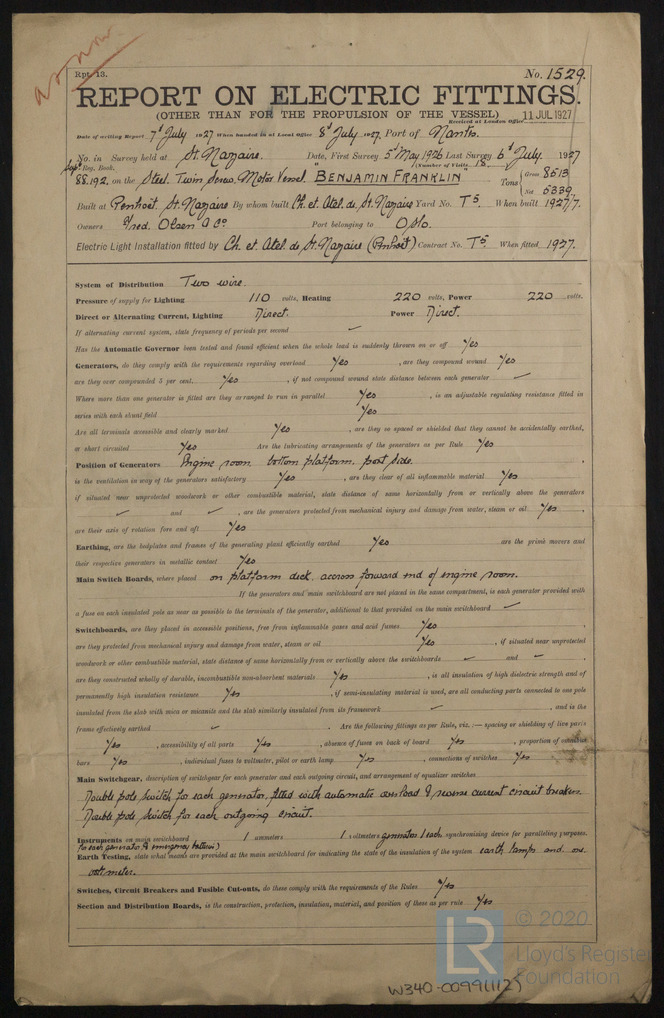 as now
Rpt. 13.
No. 1529.
REPORT ON ELECTRIC FITTINGS.
(OTHER THAN FOR THE PROPULSION OF THE VESSEL)
Received at London Office 11 JUL 1927
Date of writing Report 7th July 1927 When handed in at Local Office 8th July 1927. Port of Nantes.
No. in Survey held at St. Nazaire. Date, First Survey 5th May 1926 Last Survey 6th July. 1927
Reg. Book. (Number of Visits 18.
88.192. on the Steel Twin Screw Motor Vessel "BENJAMIN FRANKLIN" Tons { Gross 8513
Net 5339
Built at Penhoët. St. Nazaire By whom built Ch. et Atel. de St. Nazaire Yard No. T5. When built 1927/7.
Owners Fred. Olsen & Co Port belonging to Oslo.
Electric Light Installation fitted by Ch. et Atel de St. Nazaire (Penhoët) Contract No. T5 When fitted 1927.
System of Distribution Two wire.
Pressure of supply for Lighting 110 volts, Heating 220 volts, Power 220 volts.
Direct or Alternating Current, Lighting Direct. Power Direct.
If alternating current system, state frequency of periods per second
Has the Automatic Governor been tested and found efficient when the whole load is suddenly thrown on or off Yes
Generators, do they comply with the requirements regarding overload Yes , are they compound wound Yes
are they over compounded 5 per cent. Yes , if not compound wound state distance between each generator
Where more than one generator is fitted are they arranged to run in parallel Yes , is an adjustable regulating resistance fitted in
series with each shunt field Yes
Are all terminals accessible and clearly marked Yes , are they so spaced or shielded that they cannot be accidentally earthed,
or short circuited Yes Are the lubricating arrangements of the generators as per Rule Yes
Position of Generators Engine room bottom platform. port side.
is the ventilation in way of the generators satisfactory Yes , are they clear of all inflammable material Yes
if situated near unprotected woodwork or other combustible material, state distance of same horizontally from or vertically above the generators
and , are the generators protected from mechanical injury and damage from water, steam or oil Yes ,
are their axis of rotation fore and aft Yes
Earthing, are the bedplates and frames of the generating plant efficiently earthed Yes are the prime movers and
their respective generators in metallic contact Yes
Main Switch Boards, where placed on platform deck. across forward end of engine room.
If the generators and main switchboard are not placed in the same compartment, is each generator provided with
a fuse on each insulated pole as near as possible to the terminals of the generator, additional to that provided on the main switchboard
Switchboards, are they placed in accessible positions, free from inflammable gases and acid fumes Yes ,
are they protected from mechanical injury and damage from water, steam or oil Yes , if situated near unprotected
woodwork or other combustible material, state distance of same horizontally from or vertically above the switchboards and ,
are they constructed wholly of durable, incombustible non-absorbent materials Yes , is all insulation of high dielectric strength and of
permanently high insulation resistance Yes , if semi-insulating material is used, are all conducting parts connected to one pole
insulated from the slab with mica or micanite and the slab similarly insulated from its framework , and is the
frame effectively earthed . Are the following fittings as per Rule, viz.:— spacing or shielding of live parts
Yes , accessibility of all parts Yes , absence of fuses on back of board Yes , proportion of omnibus
bars Yes , individual fuses to voltmeter, pilot or earth lamp Yes , connections of switches Yes
Main Switchgear, description of switchgear for each generator and each outgoing circuit, and arrangement of equalizer switches
Double pole switch for each generator, fitted with automatic overload & reverse current circuit breaker.
Double pole switch for each outgoing circuit.
Instruments on main switchboard 1 ammeters 1 voltmeters generator 1 each synchronising device for paralleling purposes.
(for each generator & emergency battery)
Earth Testing, state what means are provided at the main switchboard for indicating the state of the insulation of the system earth lamps and one
voltmeter.
Switches, Circuit Breakers and Fusible Cut-outs, do these comply with the requirements of the Rules Yes
Section and Distribution Boards, is the construction, protection, insulation, material, and position of these as per rule Yes
LR
© 2020
Lloyd's Register
Foundation
W340-0099(1/2)